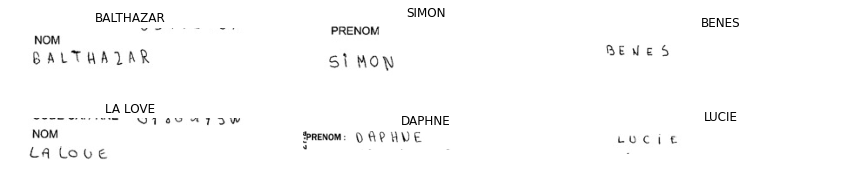 BALTHAZAR
NOM
BALTHAZAR
SIMON
PRENOM
SIMON
BENES
BENES
LA LOVE
NOM
LA LOUE
DAPHNE
PRENOM : DAPHNE
LUCIE
LUCIE